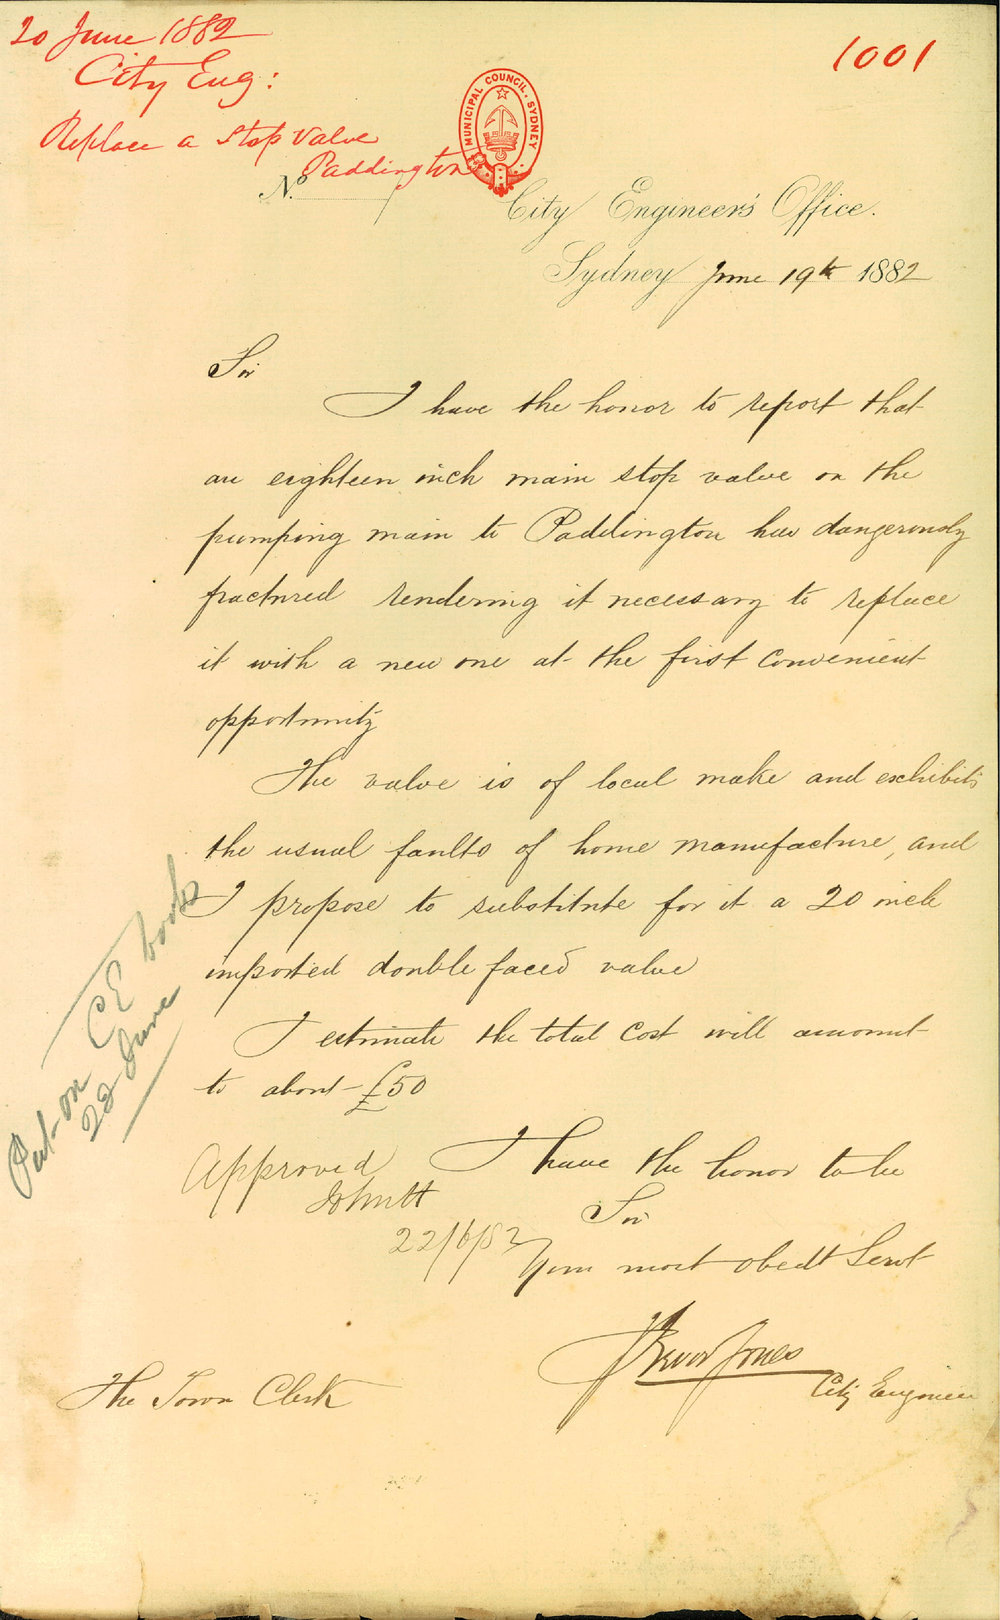 20 June 1882
City Eng:
Replace a Stop Valve
Paddington
1001
MUNICIPAL COUNCIL. SYDNEY
No.
City Engineer's Office.
Sydney June 19th 1882
Sir
I have the honor to report that
an eighteen inch main stop valve on the
pumping main to Paddington has dangerously
fractured rendering it necessary to replace
it with a new one at the first convenient
opportunity
The valve is of local make and exhibits
the usual faults of home manufacture, and
I propose to substitute for it a 20 inch
imported double faced valve
I estimate the total cost will amount
to about £50
Put on CE books
22 June
Approved
22/6/82
I have the honor to be
Sir
Your most obedt Servt
Trevor Jones
City Engineer
The Town Clerk